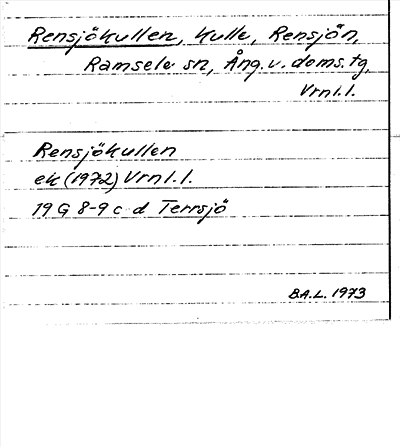 Rensjökullen, kulle, Rensjön,
Ramsele sn, Ång. v. doms. tg,
Vrnl. l.
Rensjökullen
ek (1972) Vrnl. l.
19 G 8-9 c d Terrsjö
B.A.L. 1973